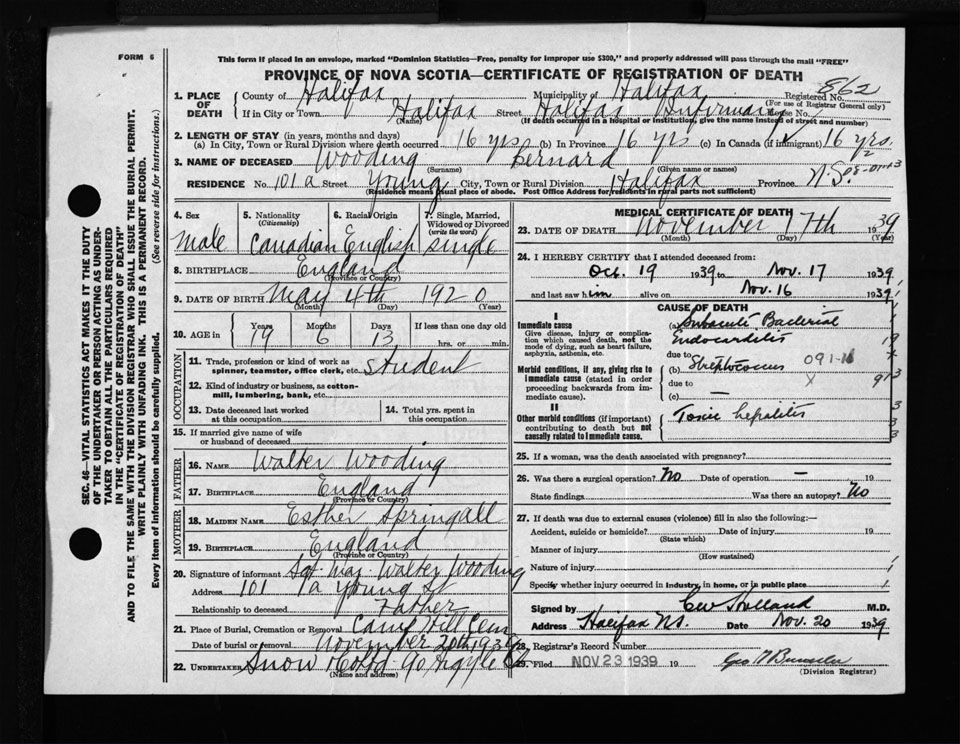 FORM 6
This form if placed in an envelope, marked "Dominion Statistics—Free, penalty for improper use $300," and properly addressed will pass through the mail "FREE"
PROVINCE OF NOVA SCOTIA—CERTIFICATE OF REGISTRATION OF DEATH
862
1. PLACE OF DEATH
County of Halifax Municipality of Halifax Registered No.
(For use of Registrar General only)
If in City or Town Halifax Street Halifax Infirmary House No.
(Name) (If death occurred in a hospital or institution, give the name instead of street and number)
2. LENGTH OF STAY (in years, months and days)
(a) In City, Town or Rural Division where death occurred 16 yrs (b) In Province 16 yrs (c) In Canada (if immigrant) 16 yrs.
3. NAME OF DECEASED Wooding Bernard
(Surname) (Given name or names)
RESIDENCE No. 101 a Street Young City, Town or Rural Division Halifax Province N.S.
(Residence means usual place of abode. Post Office Address for residents in rural parts not sufficient)
SEC. 46—VITAL STATISTICS ACT MAKES IT THE DUTY
OF THE UNDERTAKER OR PERSON ACTING AS UNDER-
TAKER TO OBTAIN ALL THE PARTICULARS REQUIRED
IN THE "CERTIFICATE OF REGISTRATION OF DEATH"
AND TO FILE THE SAME WITH THE DIVISION REGISTRAR WHO SHALL ISSUE THE BURIAL PERMIT.
WRITE PLAINLY WITH UNFADING INK. THIS IS A PERMANENT RECORD.
Every item of information should be carefully supplied. (See reverse side for instructions.)
4. Sex
Male
5. Nationality
(Citizenship)
Canadian
6. Racial Origin
English
7. Single, Married,
Widowed or Divorced
(write the word)
single
8. BIRTHPLACE England
(Province or Country)
9. DATE OF BIRTH May 4th 1920
(Month) (Day) (Year)
10. AGE in
Years Months Days If less than one day old
19 6 13 hrs. or min.
OCCUPATION
11. Trade, profession or kind of work as
spinner, teamster, office clerk, etc. student
12. Kind of industry or business, as cotton-
mill, lumbering, bank, etc.
13. Date deceased last worked
at this occupation
14. Total yrs. spent in
this occupation
15. If married give name of wife
or husband of deceased
FATHER
16. NAME Walter Wooding
17. BIRTHPLACE England
(Province or Country)
MOTHER
18. MAIDEN NAME Esther Springall
19. BIRTHPLACE England
(Province or Country)
20. Signature of informant Sgt. Maj. Walter Wooding
Address 101 1a Young St
Relationship to deceased Father
21. Place of Burial, Cremation or Removal Camp Hill Cem
Date of burial or removal November 20th 1939
22. UNDERTAKER Snow & Co Ltd 90 Argyle St
(Name and address)
MEDICAL CERTIFICATE OF DEATH
23. DATE OF DEATH November 17th 1939
(Month) (Day) (Year)
24. I HEREBY CERTIFY that I attended deceased from:
Oct. 19 1939 to Nov. 17 1939
and last saw him alive on Nov. 16 1939
CAUSE OF DEATH
I
Immediate cause
Give disease, injury or complication which caused death, not the mode of dying, such as heart failure, asphyxia, asthenia, etc.
(a) Subacute Bacterial
Endocarditis
due to
Morbid conditions, if any, giving rise to immediate cause (stated in order proceeding backwards from immediate cause).
(b) Streptococcus
due to
(c)
II
Other morbid conditions (if important) contributing to death but not causally related to immediate cause.
Toxic hepatitis
25. If a woman, was the death associated with pregnancy?
26. Was there a surgical operation? No Date of operation —
State findings Was there an autopsy? No
27. If death was due to external causes (violence) fill in also the following:—
Accident, suicide or homicide? Date of injury 19
(State which)
Manner of injury
(How sustained)
Nature of injury
Specify whether injury occurred in industry, in home, or in public place
Signed by C W Holland M.D.
Address Halifax N.S. Date Nov. 20 1939
28. Registrar's Record Number
29. Filed NOV 23 1939 19
(Division Registrar)